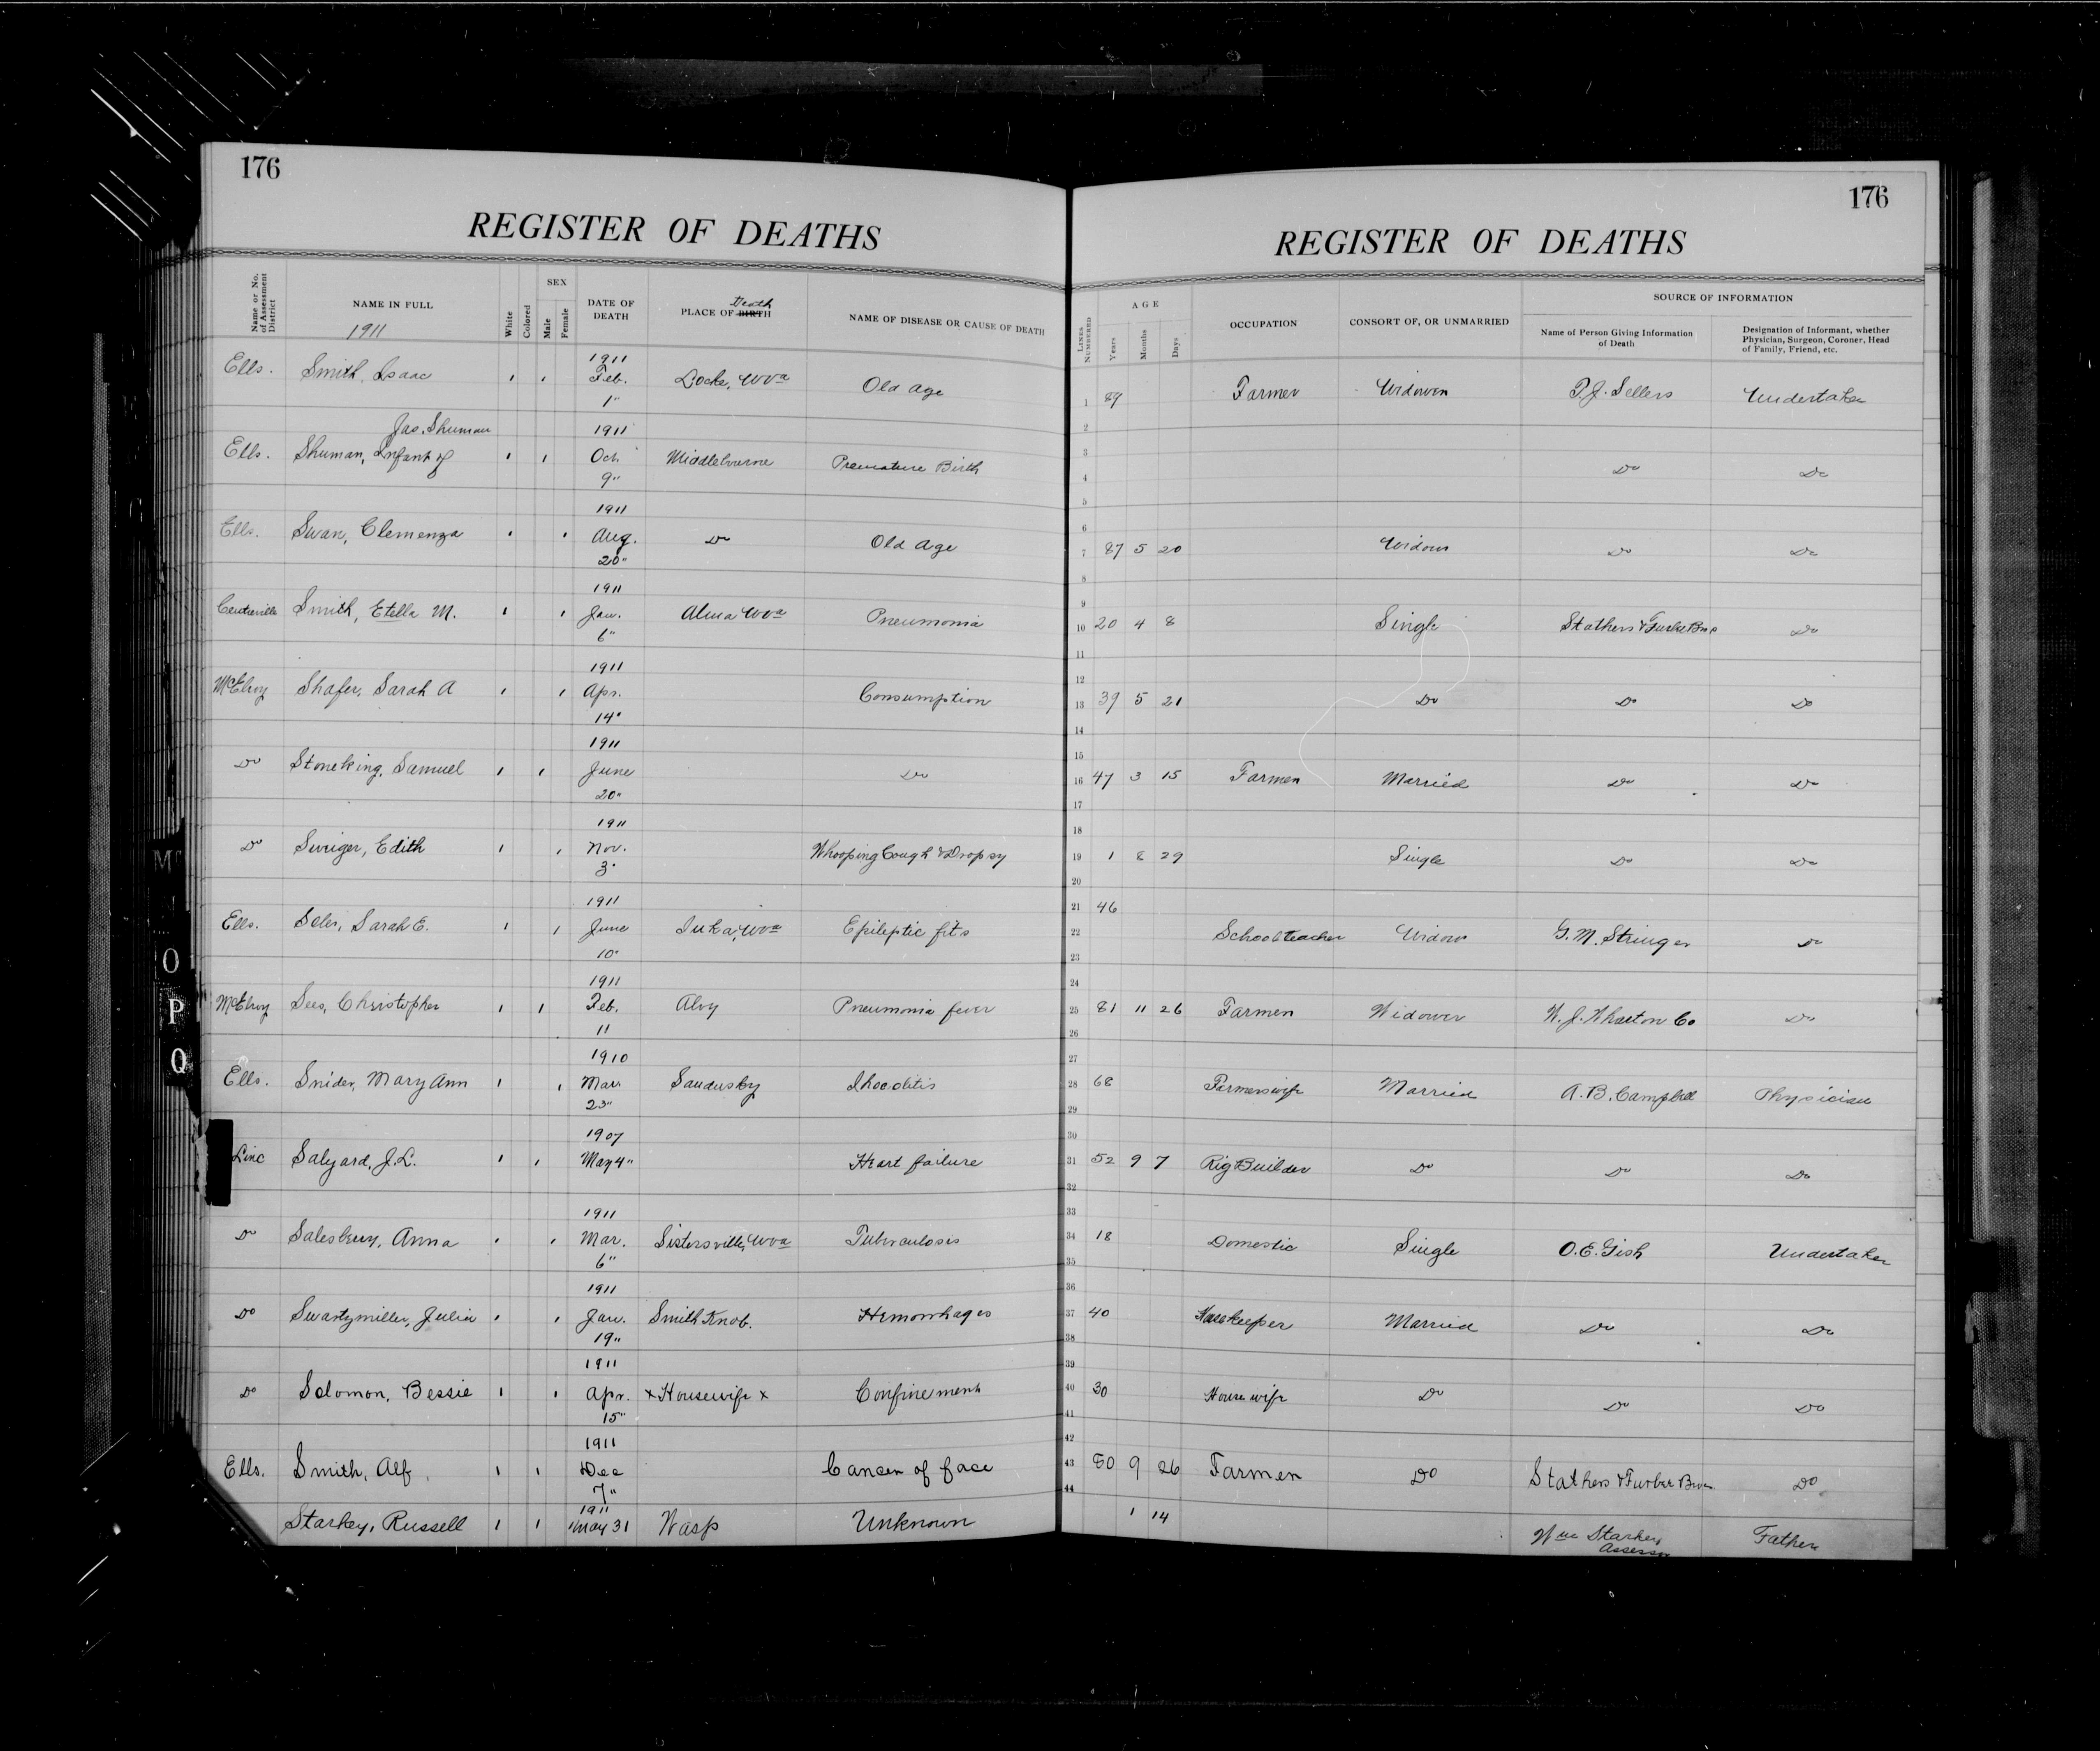 176
176
REGISTER OF DEATHS
REGISTER OF DEATHS
Name or No. of Assessment District
NAME IN FULL
1911
White
Colored
SEX
Male
Female
DATE OF DEATH
Death
PLACE OF BIRTH
NAME OF DISEASE OR CAUSE OF DEATH
LINES NUMBERED
AGE
Years
Months
Days
OCCUPATION
CONSORT OF, OR UNMARRIED
SOURCE OF INFORMATION
Name of Person Giving Information of Death
Designation of Informant, whether Physician, Surgeon, Coroner, Head of Family, Friend, etc.
Ells. Smith, Isaac 1911 Feb. 1" Locke, Wva Old age 89 Farmer Widower T.J. Sellers Undertaker
Jas. Shuman
Ells. Shuman, Infant of 1911 Oct. 9" Middlebourne Premature Birth Do Do
Ells. Swan, Clemenza 1911 Aug. 20" Do Old Age 87 5 20 Widow Do Do
Centreville Smith, Etella M. 1911 Jan. 6" Alma Wva Pneumonia 20 4 8 Single Stathers & Do
McElroy Shafer, Sarah A 1911 Apr. 14" Consumption 39 5 21 Do Do Do
Do Stoneking, Samuel 1911 June 20" Do 47 3 15 Farmer Married Do Do
Do Swiger, Edith 1911 Nov. 3" Whooping Cough & Dropsy 1 8 29 Single Do Do
Ells. Sarah E. 1911 June 10" Iuka, Wva Epileptic fits 46 School teacher Widow G.M. Stringer Do
McElroy Sees, Christopher 1911 Feb. 11 Alvy Pneumonia fever 81 11 26 Farmer Widower W.J. Wharton Co Do
Ells. Snider, Mary Ann 1910 Mar 23" Sandusky 68 Farmers wife Married A.B. Campbell Physician
Linc Salyard, J.L. 1907 May 4" Heart failure 52 9 7 Rig Builder Do Do Do
Do Salesbury, Anna 1911 Mar. 6" Sistersville, Wva Tuberculosis 18 Domestic Single O.E. Gish Undertaker
Do Swartzmiller, Julia 1911 Jan. 19" Smith Knob. Hemorrhages 40 Housekeeper Married Do Do
Do Solomon, Bessie 1911 Apr. 15" x Housewife x Confinement 30 House wife Do Do Do
Ells. Smith, Alf. 1911 Dec 7" Cancer of face 80 9 26 Farmer Do Stathers & Furbee Bros Do
Starkey, Russell 1911 May 31 Wasp Unknown 1 14 Wm Starkey Father
Assessor
M
O
P
Q